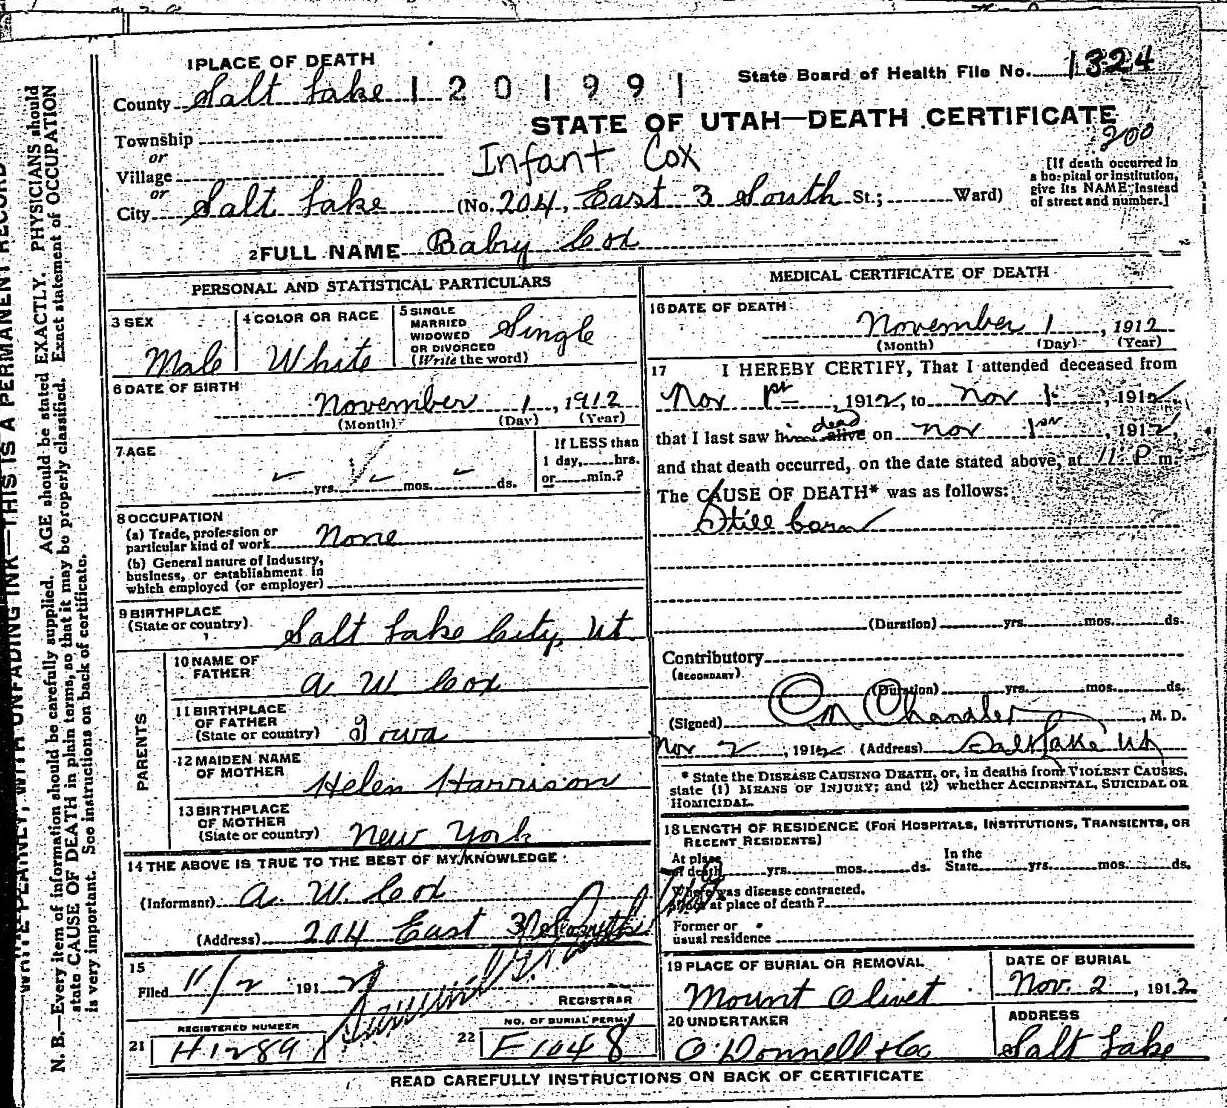 1 PLACE OF DEATH
County Salt Lake 1 2 0 1 9 9 1
State Board of Health File No. 1324
STATE OF UTAH—DEATH CERTIFICATE
200
Township
or
Village
or
City Salt Lake
Infant Cox
(No. 204, East 3 South St.; Ward)
[If death occurred in
a hospital or institution,
give its NAME instead
of street and number.]
2 FULL NAME Baby Cox
PERSONAL AND STATISTICAL PARTICULARS
3 SEX
Male
4 COLOR OR RACE
White
5 SINGLE
MARRIED
WIDOWED
OR DIVORCED
(Write the word)
Single
6 DATE OF BIRTH
November 1, 1912
(Month) (Day) (Year)
7 AGE
yrs. mos. ds.
If LESS than
1 day, hrs.
or min.?
8 OCCUPATION
(a) Trade, profession or
particular kind of work None
(b) General nature of industry,
business, or establishment in
which employed (or employer)
9 BIRTHPLACE
(State or country) Salt Lake City, Ut.
PARENTS
10 NAME OF
FATHER A W Cox
11 BIRTHPLACE
OF FATHER
(State or country) Iowa
12 MAIDEN NAME
OF MOTHER Helen Harrison
13 BIRTHPLACE
OF MOTHER
(State or country) New York
14 THE ABOVE IS TRUE TO THE BEST OF MY KNOWLEDGE
(Informant) A. W. Cox
(Address) 204 East 3rd South
15
Filed 11/2 1912
REGISTRAR
REGISTERED NUMBER
21 H1289
NO. OF BURIAL PERMIT
22 F1048
MEDICAL CERTIFICATE OF DEATH
16 DATE OF DEATH
November 1, 1912
(Month) (Day) (Year)
17 I HEREBY CERTIFY, That I attended deceased from
Nov 1st, 1912, to Nov 1st 1912
that I last saw him dead alive on Nov 1st, 1912,
and that death occurred, on the date stated above, at 11 P m.
The CAUSE OF DEATH* was as follows:
Still born
(Duration) yrs. mos. ds.
Contributory
(SECONDARY)
(Duration) yrs. mos. ds.
(Signed) Chandler, M. D.
Nov 2, 1912 (Address) Salt Lake Ut
* State the DISEASE CAUSING DEATH, or, in deaths from VIOLENT CAUSES,
state (1) MEANS OF INJURY; and (2) whether ACCIDENTAL, SUICIDAL OR
HOMICIDAL.
18 LENGTH OF RESIDENCE (FOR HOSPITALS, INSTITUTIONS, TRANSIENTS, OR
RECENT RESIDENTS)
At place
of death yrs. mos. ds. In the
State yrs. mos. ds.
Where was disease contracted,
if not at place of death?
Former or
usual residence
19 PLACE OF BURIAL OR REMOVAL
Mount Olivet
DATE OF BURIAL
Nov. 2, 1912
20 UNDERTAKER
O'Donnell & Co
ADDRESS
Salt Lake
READ CAREFULLY INSTRUCTIONS ON BACK OF CERTIFICATE
WRITE PLAINLY, WITH UNFADING INK—THIS IS A PERMANENT RECORD
N. B.—Every item of information should be carefully supplied. AGE should be stated EXACTLY. PHYSICIANS should
state CAUSE OF DEATH in plain terms, so that it may be properly classified. Exact statement of OCCUPATION
is very important. See instructions on back of certificate.